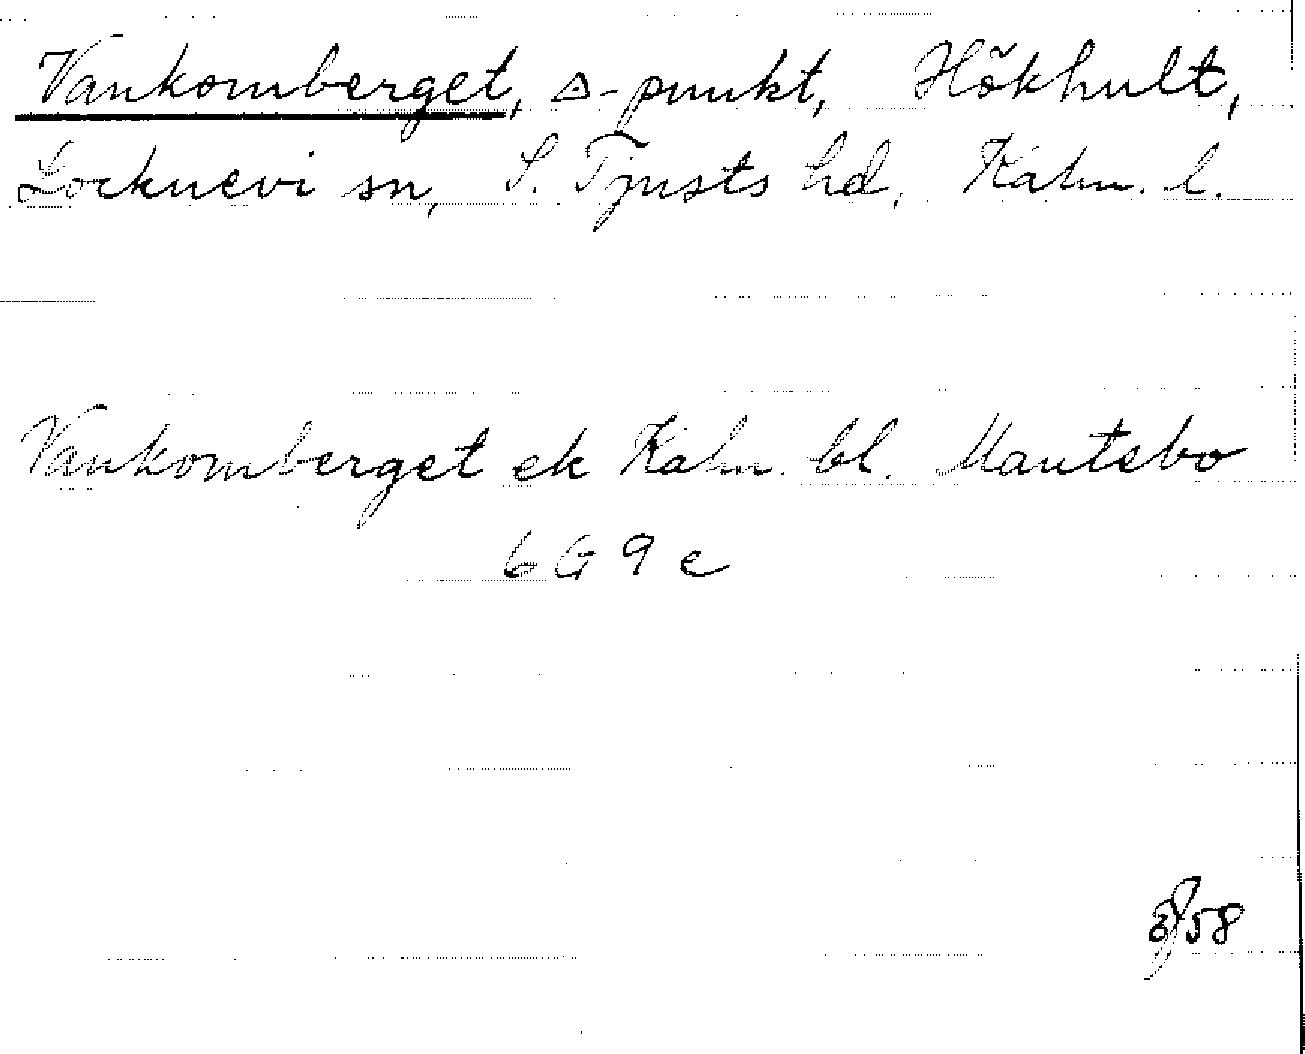 Vankomberget, △-punkt, Hökhult,
Locknevi sn, S. Tjusts hd, Kalm. l.
Vankomberget ek Kalm. bl. Mantebo
6 G 9 e
58